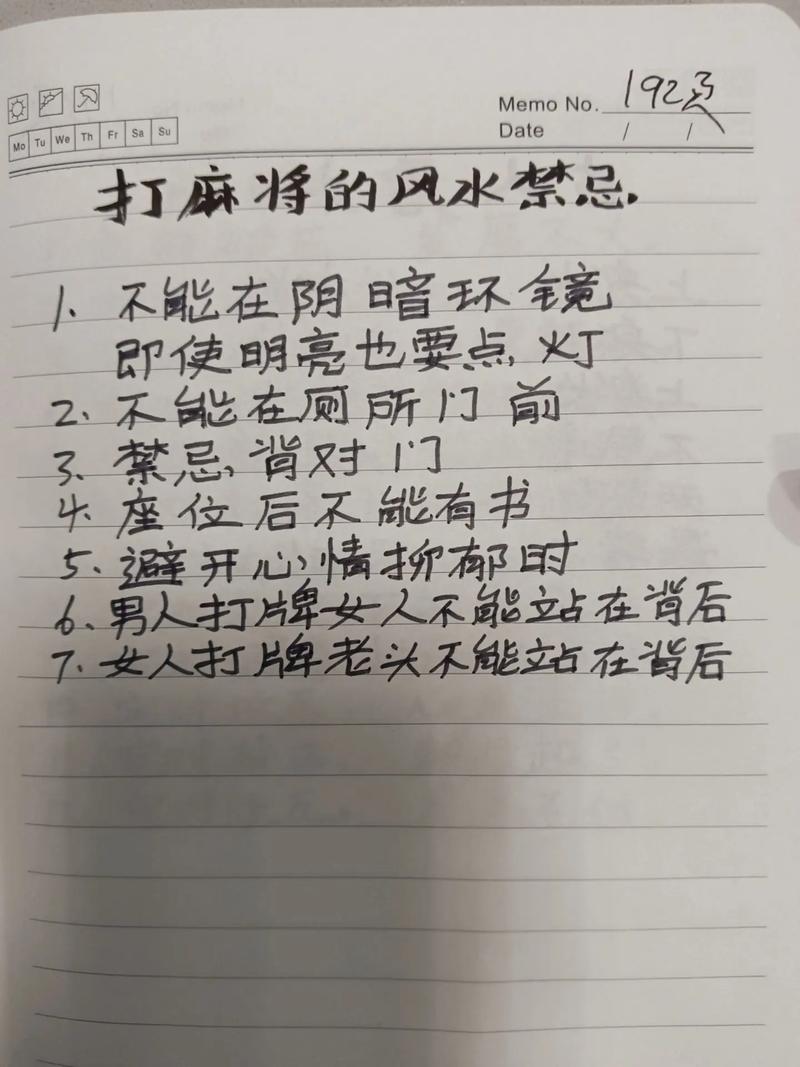 Memo No. 1923
Mo Tu We Th Fr Sa Su
Date / /
打麻将的风水禁忌.
1. 不能在阴暗环镜
即使明亮也要点灯
2. 不能在厕所门前
3. 禁忌背对门
4. 座位后不能有书
5. 避开心情抑郁时
6. 男人打牌女人不能站在背后
7. 女人打牌老头不能站在背后